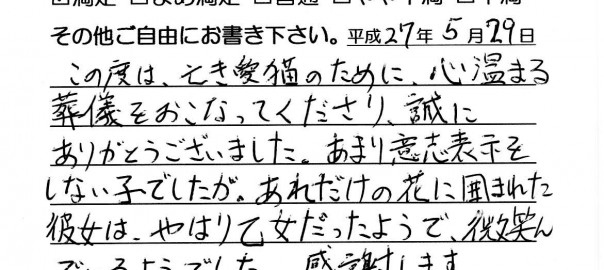 その他ご自由にお書き下さい。平成27年5月29日
この度は、亡き愛猫のために、心温まる
葬儀をおこなってくださり、誠に
ありがとうございました。あまり意志表示を
しない子でしたが。あれだけの花に囲まれた
彼女は、やはり乙女だったようで、微笑ん
でいるようでした。感謝します